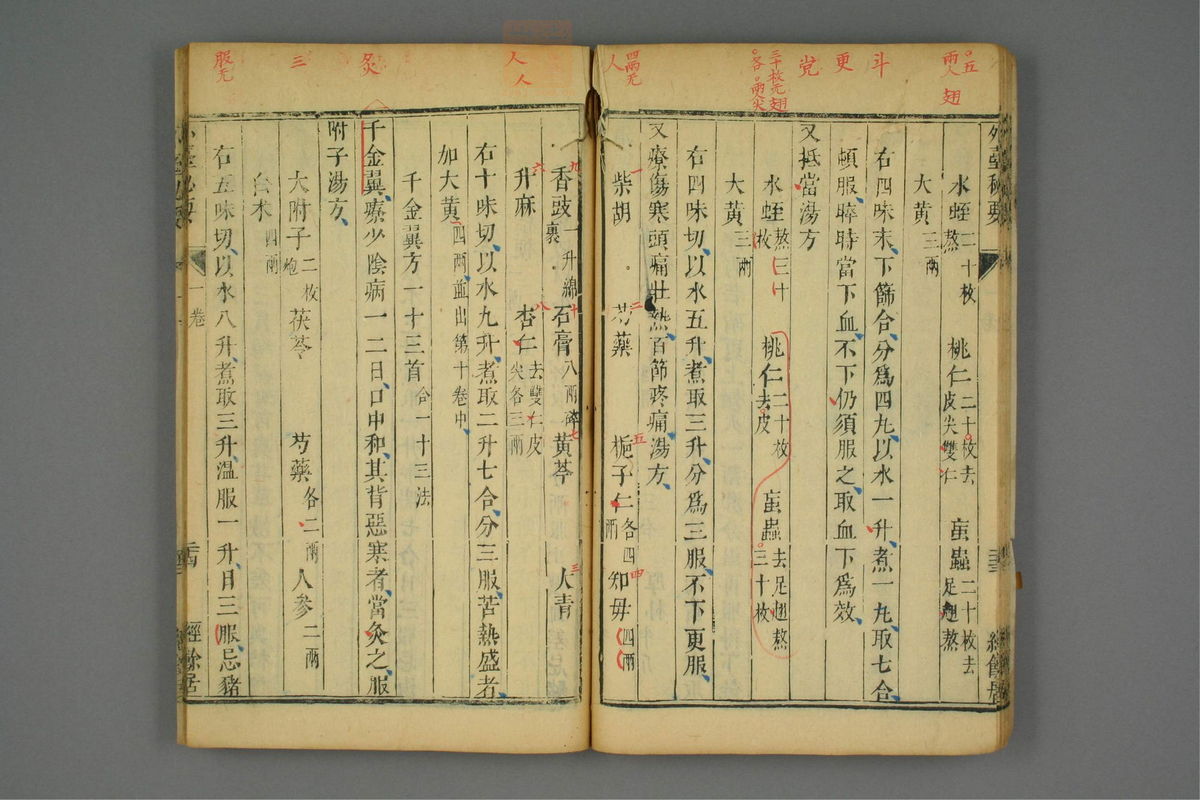 五兩人 翅
斗
更
党
三十枚无翅
客兩尖
四兩无
人
外臺祕要
水蛭熬二十枚 桃仁二十枚去皮尖雙仁 䖟蟲二十枚去足翅熬
大黄三兩
右四味末下篩合分爲四丸以水一升煮一丸取七合
頓服晬時當下血不下仍須服之取血下爲效
又抵當湯方
水蛭熬三十枚 桃仁二十枚去皮 䖟蟲去足翅熬三十枚
大黄三兩
右四味切以水五升煮取三升分爲三服不下更服
又療傷寒頭痛壯熱百節疼痛湯方
一柴胡 二芍藥 五梔子仁各四兩 四知母四兩
人
人
灸
三
服无
九香豉一升綿裹 十石膏八兩碎 七黄芩 三大青
六升麻 八杏仁去雙仁皮尖各三兩
右十味切以水九升煮取二升七合分三服苦熱盛者
加大黄四兩並出第十卷中
千金翼方一十三首合一十三法
千金翼療少陰病一二日口中和其背惡寒者當灸之服
附子湯方
大附子二枚炮 茯苓 芍藥各二兩 人參二兩
白术四兩
右五味切以水八升煮取三升温服一升日三服忌豬
一卷
經餘居